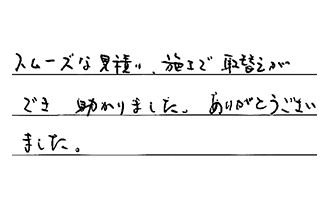 スムーズな見積り、施工で取替えが
でき 助かりました。ありがとうござい
ました。